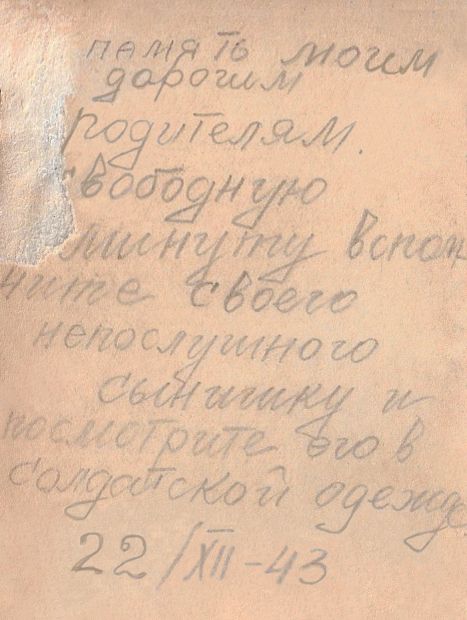 память моим
дорогим
родителям.
свободную
минуту вспом
ните своего
непослушного
сынишку и
посмотрите его в
солдатской одежде
22/XII-43